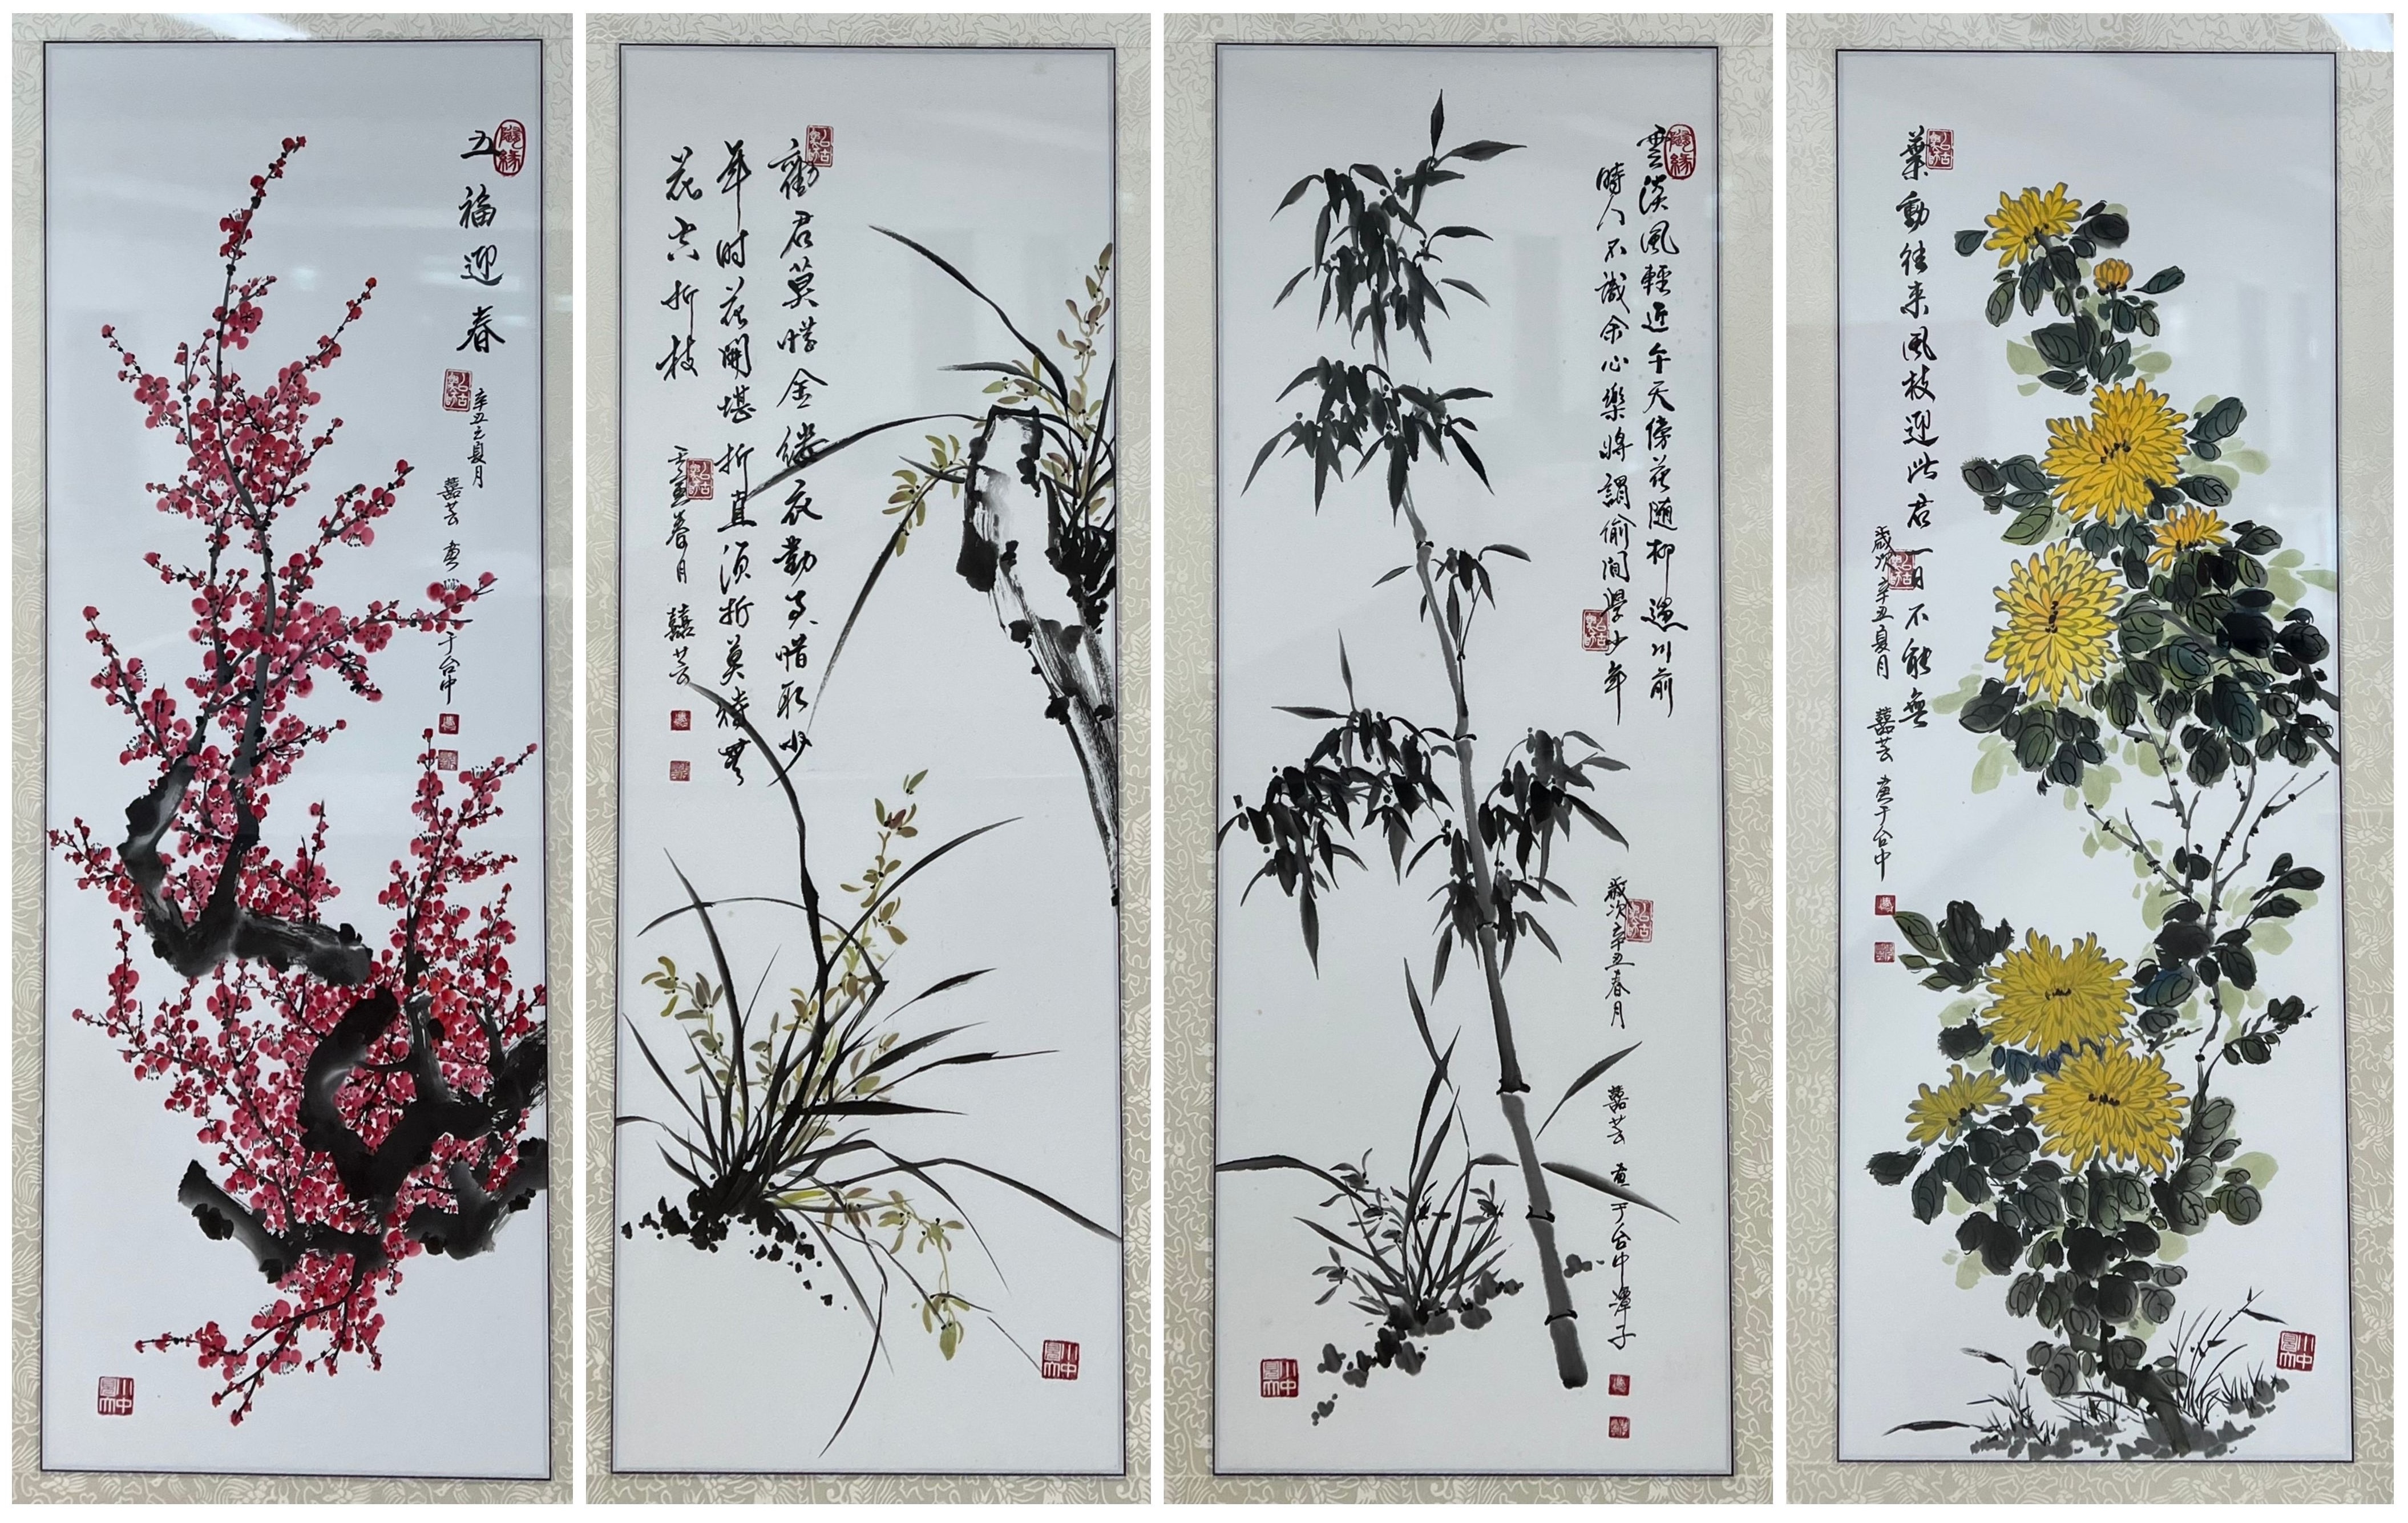 五福迎春
辛丑之夏月
囍芸 畫 于台中
勸君莫惜金縷衣勸君惜取少
年时花開堪折直須折莫待無
花空折枝
春月 囍芸
雲淡風輕近午天傍花随柳過川前
時人不識余心樂將謂偷閒學少年
歲次辛丑春月 囍芸 畫于台中潭子
葉動往来風枝迎此君一日不能無
歲次辛丑夏月 囍芸 畫于台中